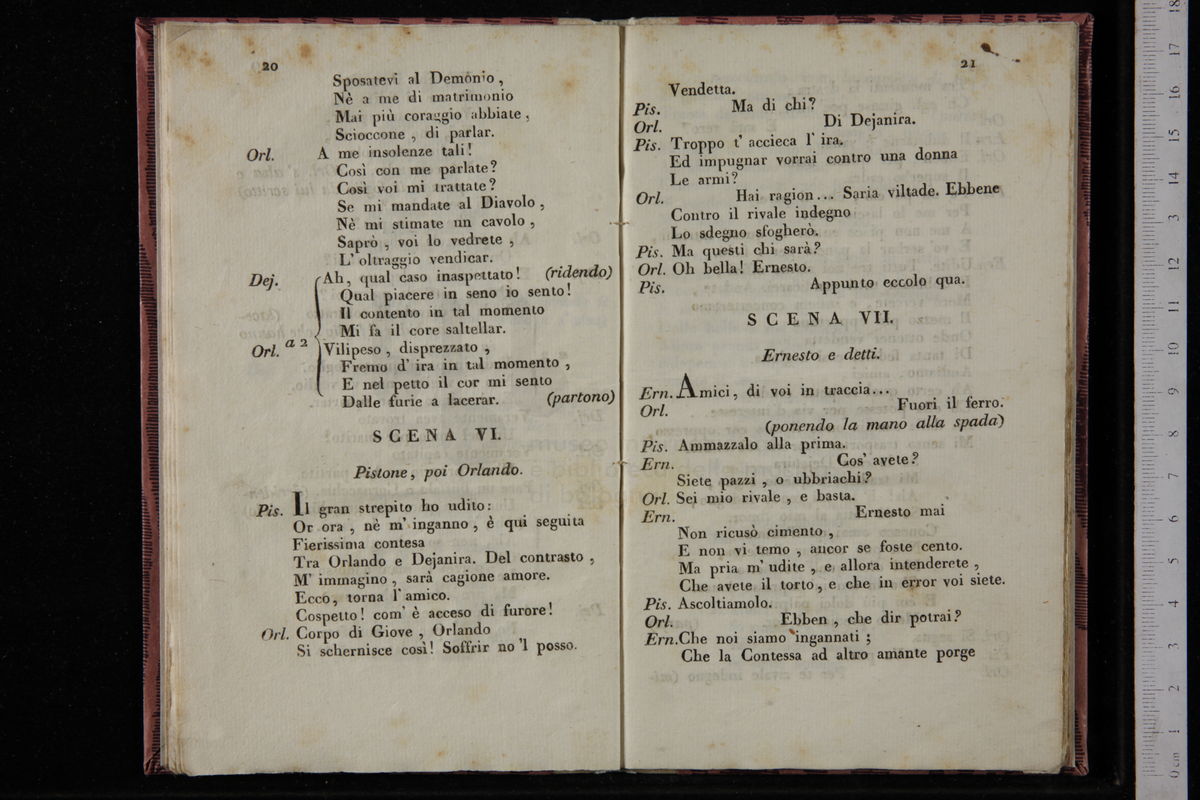 20
Sposatevi al Demonio ,
Nè a me di matrimonio
Mai più coraggio abbiate ,
Scioccone , di parlar.
Orl. A me insolenze tali!
Così con me parlate?
Così voi mi trattate?
Se mi mandate al Diavolo ,
Nè mi stimate un cavolo ,
Saprò , voi lo vedrete ,
L' oltraggio vendicar.
Dej. Ah, qual caso inaspettato! (ridendo)
Qual piacere in seno io sento!
Il contento in tal momento
Mi fa il core saltellar.
Orl. a 2 Vilipeso , disprezzato ,
Fremo d' ira in tal momento ,
E nel petto il cor mi sento
Dalle furie a lacerar. (partono)
SCENA VI.
Pistone, poi Orlando.
Pis. Il gran strepito ho udito:
Or ora , nè m' inganno , è qui seguita
Fierissima contesa
Tra Orlando e Dejanira. Del contrasto ,
M' immagino , sarà cagione amore.
Ecco, torna l' amico.
Cospetto! com' è acceso di furore!
Orl. Corpo di Giove , Orlando
Si schernisce così! Soffrir no 'l posso.
21
Vendetta.
Pis. Ma di chi?
Orl. Di Dejanira.
Pis. Troppo t' accieca l' ira.
Ed impugnar vorrai contro una donna
Le armi?
Orl. Hai ragion... Saria viltade. Ebbene
Contro il rivale indegno
Lo sdegno sfogherò.
Pis. Ma questi chi sarà?
Orl. Oh bella! Ernesto.
Pis. Appunto eccolo qua.
SCENA VII.
Ernesto e detti.
Ern. Amici, di voi in traccia...
Orl. Fuori il ferro.
(ponendo la mano alla spada)
Pis. Ammazzalo alla prima.
Ern. Cos' avete?
Siete pazzi , o ubbriachi?
Orl. Sei mio rivale , e basta.
Ern. Ernesto mai
Non ricusò cimento ,
E non vi temo , ancor se foste cento.
Ma pria m' udite , e allora intenderete ,
Che avete il torto, e che in error voi siete.
Pis. Ascoltiamolo.
Orl. Ebben , che dir potrai?
Ern. Che noi siamo ingannati ;
Che la Contessa ad altro amante porge